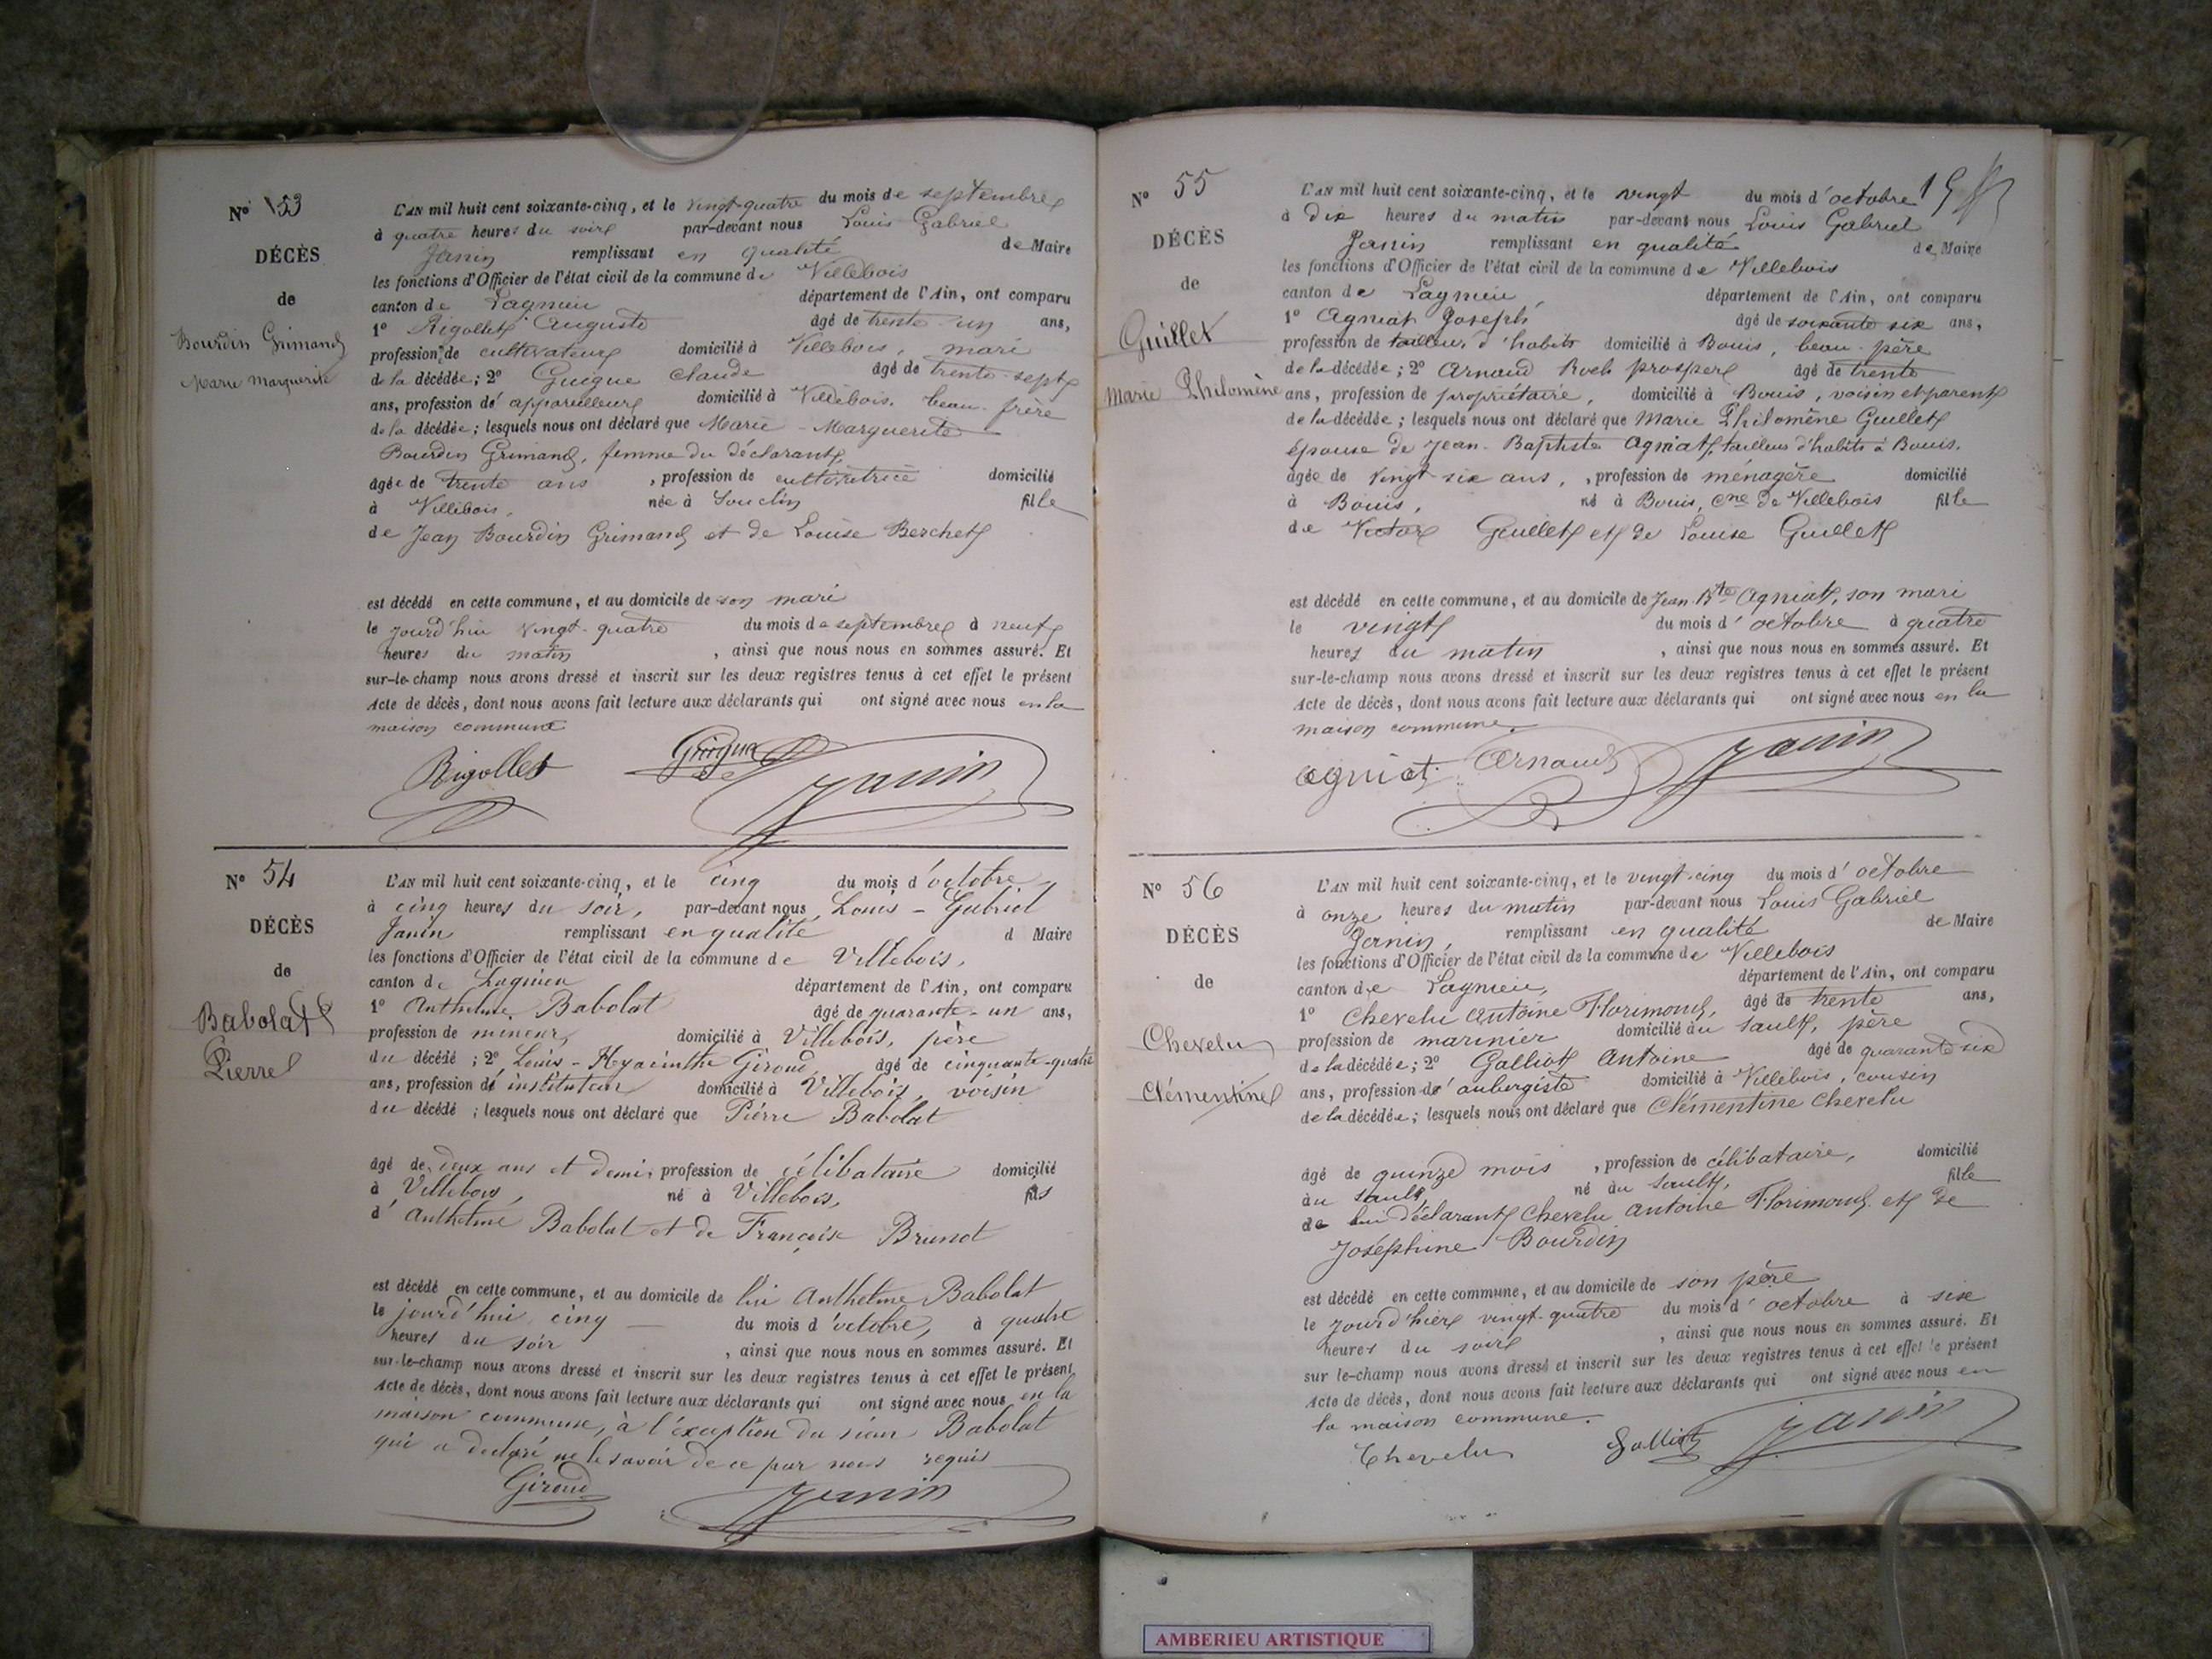 N° 53
DÉCÈS
de
Bourdin Grimand
Marie Marguerite
L'AN mil huit cent soixante-cinq, et le vingt-quatre du mois de septembre
à quatre heures du soir par-devant nous Louis Gabriel
Janin remplissant en qualité de Maire
les fonctions d'Officier de l'état civil de la commune de Villebois
canton de Lagnieu département de l'Ain, ont comparu
1° Rigollet Auguste âgé de trente-un ans,
profession de cultivateur domicilié à Villebois, mari
de la décédée; 2° Guigue Claude âgé de trente-sept
ans, profession d'appareilleur domicilié à Villebois, beau-frère
de la décédée; lesquels nous ont déclaré que Marie-Marguerite
Bourdin Grimand, femme du déclarant,
âgée de trente ans, profession de cultivatrice domicilié
à Villebois, née à Souclin fille
de Jean Bourdin Grimand et de Louise Berchet
est décédé en cette commune, et au domicile de son mari
le jourd'hui vingt-quatre du mois de septembre à neuf
heures du matin, ainsi que nous nous en sommes assuré. Et
sur-le-champ nous avons dressé et inscrit sur les deux registres tenus à cet effet le présent
Acte de décès, dont nous avons fait lecture aux déclarants qui ont signé avec nous en la
maison commune
Rigollet Guigue Janin
N° 54
DÉCÈS
de
Babolat
Pierre
L'AN mil huit cent soixante-cinq, et le cinq du mois d'octobre
à cinq heures du soir, par-devant nous Louis-Gabriel
Janin remplissant en qualité d Maire
les fonctions d'Officier de l'état civil de la commune de Villebois,
canton de Lagnieu département de l'Ain, ont comparu
1° Anthelme Babolat âgé de quarante-un ans,
profession de mineur, domicilié à Villebois, père
du décédé; 2° Louis-Hyacinthe Giroud âgé de cinquante-quatre
ans, profession d'instituteur domicilié à Villebois, voisin
du décédé; lesquels nous ont déclaré que Pierre Babolat
âgé de deux ans et demi, profession de célibataire domicilié
à Villebois, né à Villebois, fils
d'Anthelme Babolat et de Françoise Brunot
est décédé en cette commune, et au domicile de lui Anthelme Babolat
le jourd'hui cinq du mois d'octobre, à quatre
heures du soir, ainsi que nous nous en sommes assuré. Et
sur-le-champ nous avons dressé et inscrit sur les deux registres tenus à cet effet le présent
Acte de décès, dont nous avons fait lecture aux déclarants qui ont signé avec nous en la
maison commune, à l'exception du sieur Babolat
qui a déclaré ne le savoir de ce par nous requis
Giroud Janin
N° 55
DÉCÈS
de
Guillet
Marie Philomène
L'AN mil huit cent soixante-cinq, et le vingt du mois d'octobre
à dix heures du matin par-devant nous Louis Gabriel
Janin remplissant en qualité de Maire
les fonctions d'Officier de l'état civil de la commune de Villebois
canton de Lagnieu, département de l'Ain, ont comparu
1° Agniat Joseph âgé de soixante six ans,
profession de tailleur d'habits domicilié à Bouis, beau-père
de la décédée; 2° Arnaud Roch prosper âgé de trente
ans, profession de propriétaire, domicilié à Bouis, voisin et parent
de la décédée; lesquels nous ont déclaré que Marie Philomène Guillet
épouse de Jean-Baptiste Agniat, tailleur d'habits à Bouis.
âgée de vingt six ans, profession de ménagère domicilié
à Bouis, né à Bouis, Cne de Villebois fille
de Victor Guillet et de Louise Guillet
est décédé en cette commune, et au domicile de Jean Bte Agniat, son mari
le vingt du mois d'octobre à quatre
heures du matin, ainsi que nous nous en sommes assuré. Et
sur-le-champ nous avons dressé et inscrit sur les deux registres tenus à cet effet le présent
Acte de décès, dont nous avons fait lecture aux déclarants qui ont signé avec nous en la
maison commune.
agniat Arnaud Janin
N° 56
DÉCÈS
de
Chevelu
Clémentine
L'AN mil huit cent soixante-cinq, et le vingt-cinq du mois d'octobre
à onze heures du matin par-devant nous Louis Gabriel
Janin, remplissant en qualité de Maire
les fonctions d'Officier de l'état civil de la commune de Villebois
canton de Lagnieu, département de l'Ain, ont comparu
1° Chevelu Antoine Florimond, âgé de trente ans,
profession de marinier domicilié au Sault, père
de la décédée; 2° Galliot Antoine âgé de quarante six
ans, profession d'aubergiste domicilié à Villebois, cousin
de la décédée; lesquels nous ont déclaré que Clémentine Chevelu
âgé de quinze mois, profession de célibataire, domicilié
au Sault, né au Sault, fille
de lui déclarant Chevelu Antoine Florimond et de
Joséphine Bourdin
est décédé en cette commune, et au domicile de son père
le jourd'hier vingt-quatre du mois d'octobre à six
heures du soir, ainsi que nous nous en sommes assuré. Et
sur-le-champ nous avons dressé et inscrit sur les deux registres tenus à cet effet le présent
Acte de décès, dont nous avons fait lecture aux déclarants qui ont signé avec nous en
la maison commune.
Chevelu Galliot Janin
AMBERIEU ARTISTIQUE